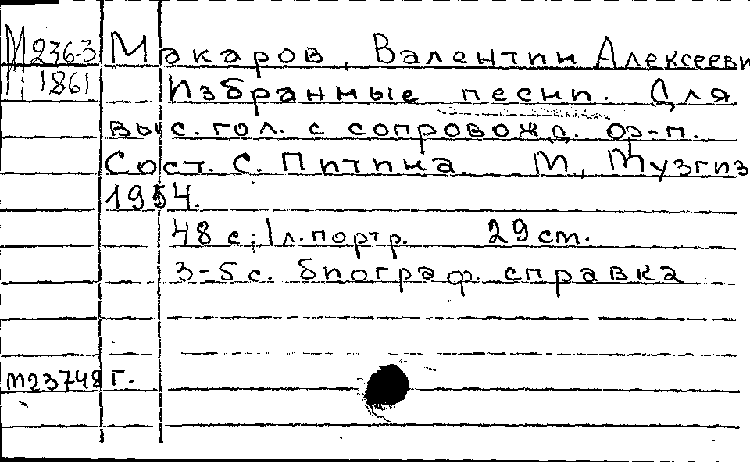 М 236-3 Макаров, Валентин Алексееви
1861 Избранные песни. Для
выс. гол. с сопровожд. ор-п.
Сост. С. Питина М, Музгиз
1954.
48 с; 1 л. портр. 29 cm.
3-5 с. биограф. справка
м23742 г.